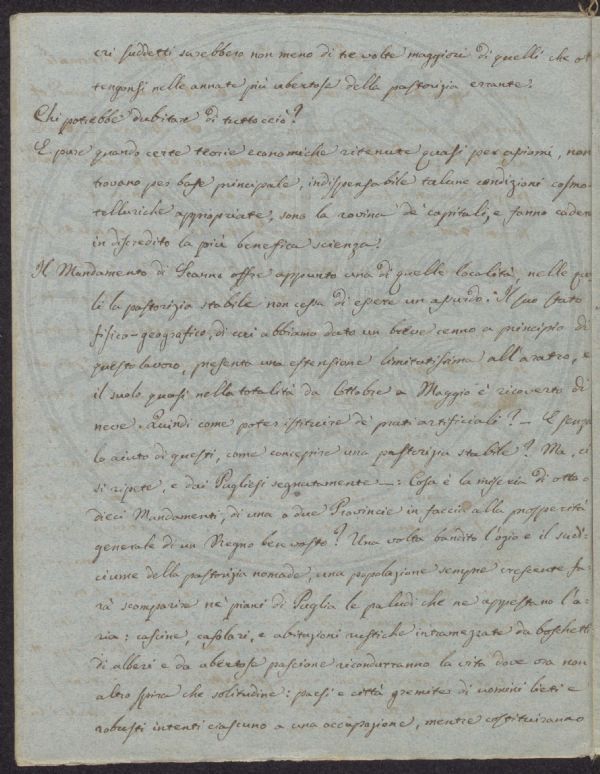 eri suddetti sarebbero non meno di tre volte maggiori di quelli che ot
tengonsi nelle annate più ubertose della pastorizia errante.
Chi potrebbe dubitare di tutto ciò?
E pure quando certe teorie economiche ritenute quasi per assiomi, non
trovano per base principale, indispensabile talune condizioni cosmo-
telluriche appropriate, sono la rovina de' capitali, e fanno cadere
in discredito la più benefica scienza!
Il Mandamento di Scanno offre appunto una di quelle località, nelle qua
li la pastorizia stabile non cessa di essere un assurdo. Il suo stato
fisico-geografico, di cui abbiamo dato un breve cenno a principio di
questo lavoro, presenta una estensione limitatissima all'aratro, e
il suolo quasi nella totalità da Ottobre a Maggio è ricoverto di
neve. Quindi come poter istituire de' prati artificiali? — E senza
lo aiuto di questi, come concepire una pastorizia stabile? Ma, ci
si ripete, e dai Pugliesi segnatamente —: Cosa è la miseria di otto o
dieci Mandamenti, di una o due Provincie in faccia alla prosperità
generale di un Regno ben vasto? Una volta bandito l'ozio e il sudi-
ciume della pastorizia nomade, una popolazione sempre crescente fa-
rà scomparire ne' piani di Puglia le paludi che ne appestano l'a-
ria: cascine, casolari, e abitazioni rustiche intramezzate da boschetti
di alberi e da ubertose pascione ricondurranno la vita dove ora non
altro spira che solitudine: paesi e città gremite di uomini lieti e
robusti intenti ciascuno a una occupazione, mentre costituiranno